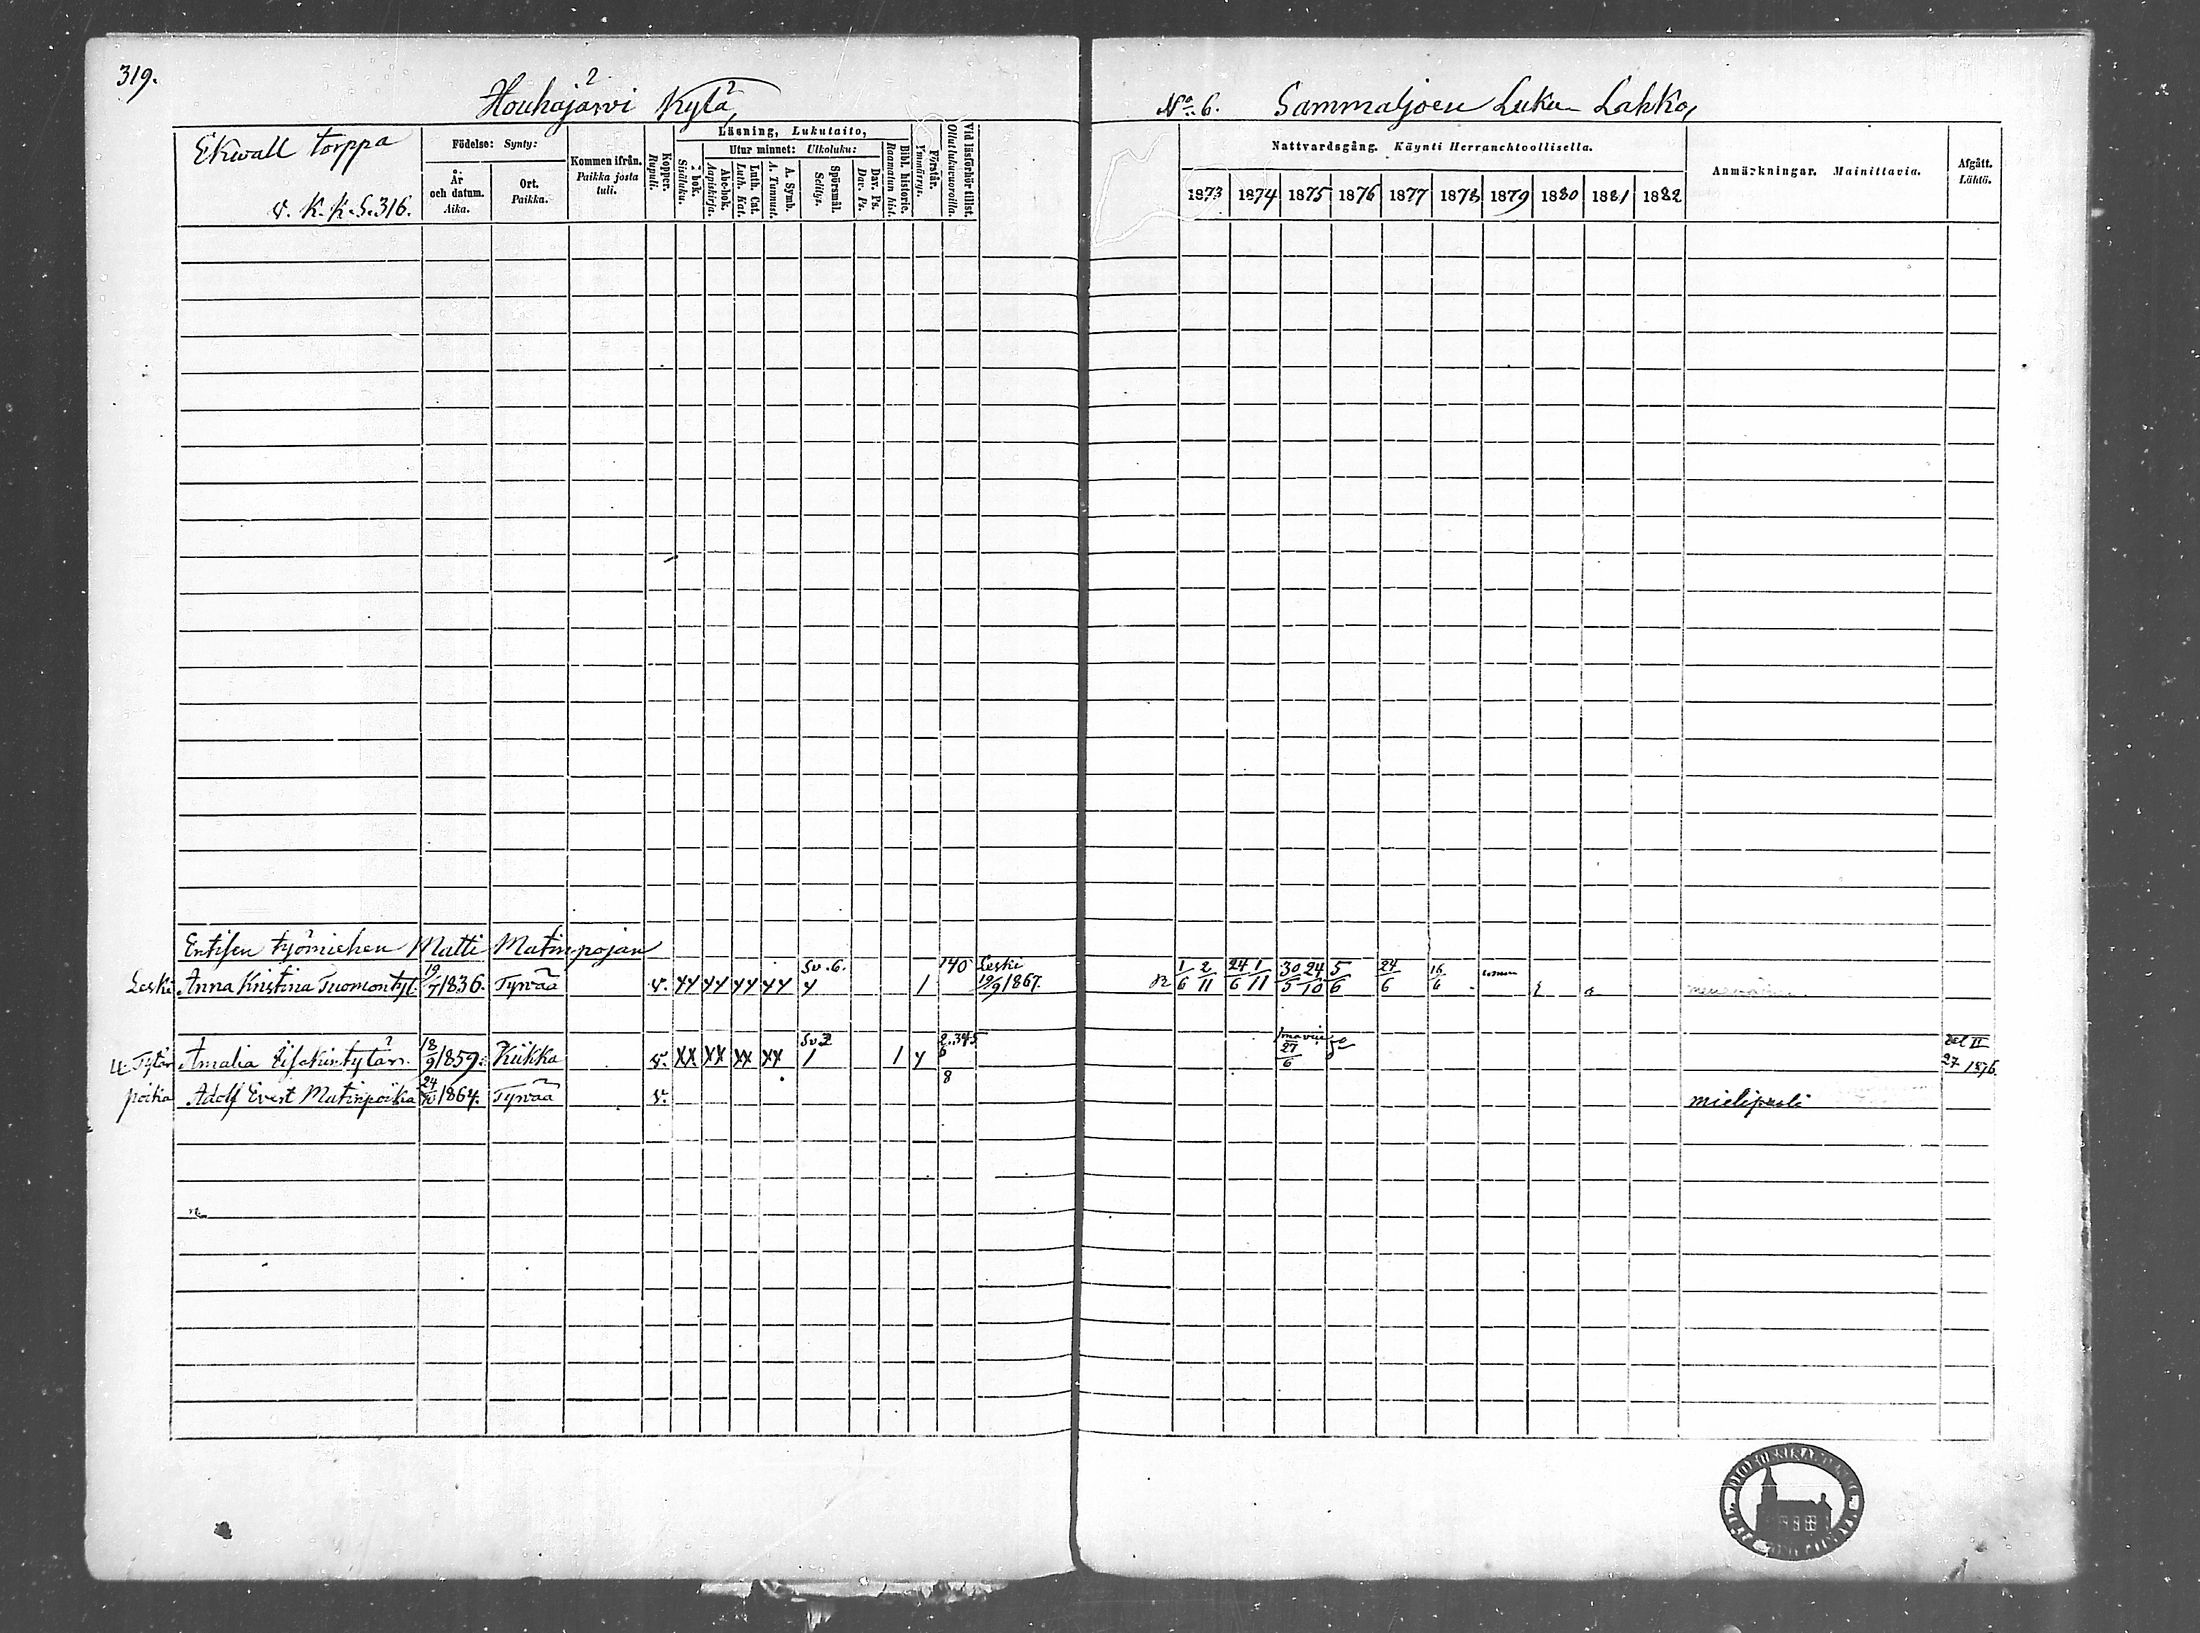 319.
Houhajärvi Kylä,
No 6. Sammaljoen Luku-Lahko,
Ekwall torppa
v. K. K. S. 316.
Födelse: Synty:
År och datum. Aika.
Ort. Paikka.
Kommen ifrån. Paikka josta tuli.
Koppor. Rupuli.
Läsning, Lukutaito,
I bok. Sisäluku.
Utur minnet: Ulkoluku:
Abc-bok. Aapiskirja.
Luth. Cat. Luth. Kat.
A. Symb. A. Tunnust.
Spörsmål. Selitys.
Dav. Ps. Dav. Ps.
Bibl. historie. Raamatun hist.
Förstår. Ymmärrys.
Vid läsförhör tillst. Ollut lukuvuoroilla.
Nattvardsgång. Käynti Herranehtoollisella.
1873 1874 1875 1876 1877 1878 1879 1880 1881 1882
Anmärkningar. Mainittavia.
Afgått. Lähtö.
Entisen työmiehen Matti Matinpojan
Leski Anna Kristina Tuomontyt. 19/7 1836. Tyrvää v. Sv. 6. 1 140 Leski 19/9 1867. 1/6 2/11 24/6 1/11 30/5 24/10 5/6 24/6 16/6
Tytär Amalia Iisakintytär. 18/9 1859. Kiikka v. Sv 2 1 1 2..345 6 27/6 27 1876.
poika Adolf Evert Matinpoika 1864. Tyrvää v. 8 mielipuoli